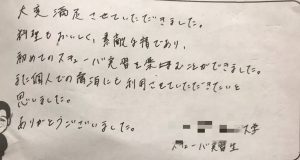 大変満足させていただきました。
料理もおいしく、素敵な宿であり、
初めてのスキューバ実習を楽しむことができました。
また個人での宿泊にも利用させていただきたいと
思いました。
ありがとうございました。
大学
スキューバ実習生